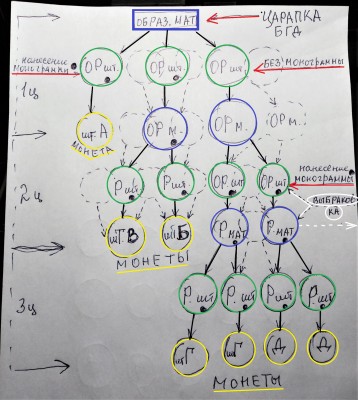 ОБРАЗ. МАТ
ЦАРАПКА
БГД
нанесение
монограммы
ОР шт.
ОР шт.
ОР шт.
БЕЗ МОНОГРАММЫ
1ц
шт. А
МОНЕТА
ОР м.
ОР м.
ОР м.
2ц
Р шт.
Р шт.
ОР шт
ОР шт
нанесение
МОНОГРАММЫ
ВЫБРАКОВ
КА
шт. В
шт. Б
Р МАТ
Р МАТ
МОНЕТЫ
3ц
Р. шт
Р. шт
Р шт
Р. шт
шт Г
шт Г
Д
Д
МОНЕТЫ